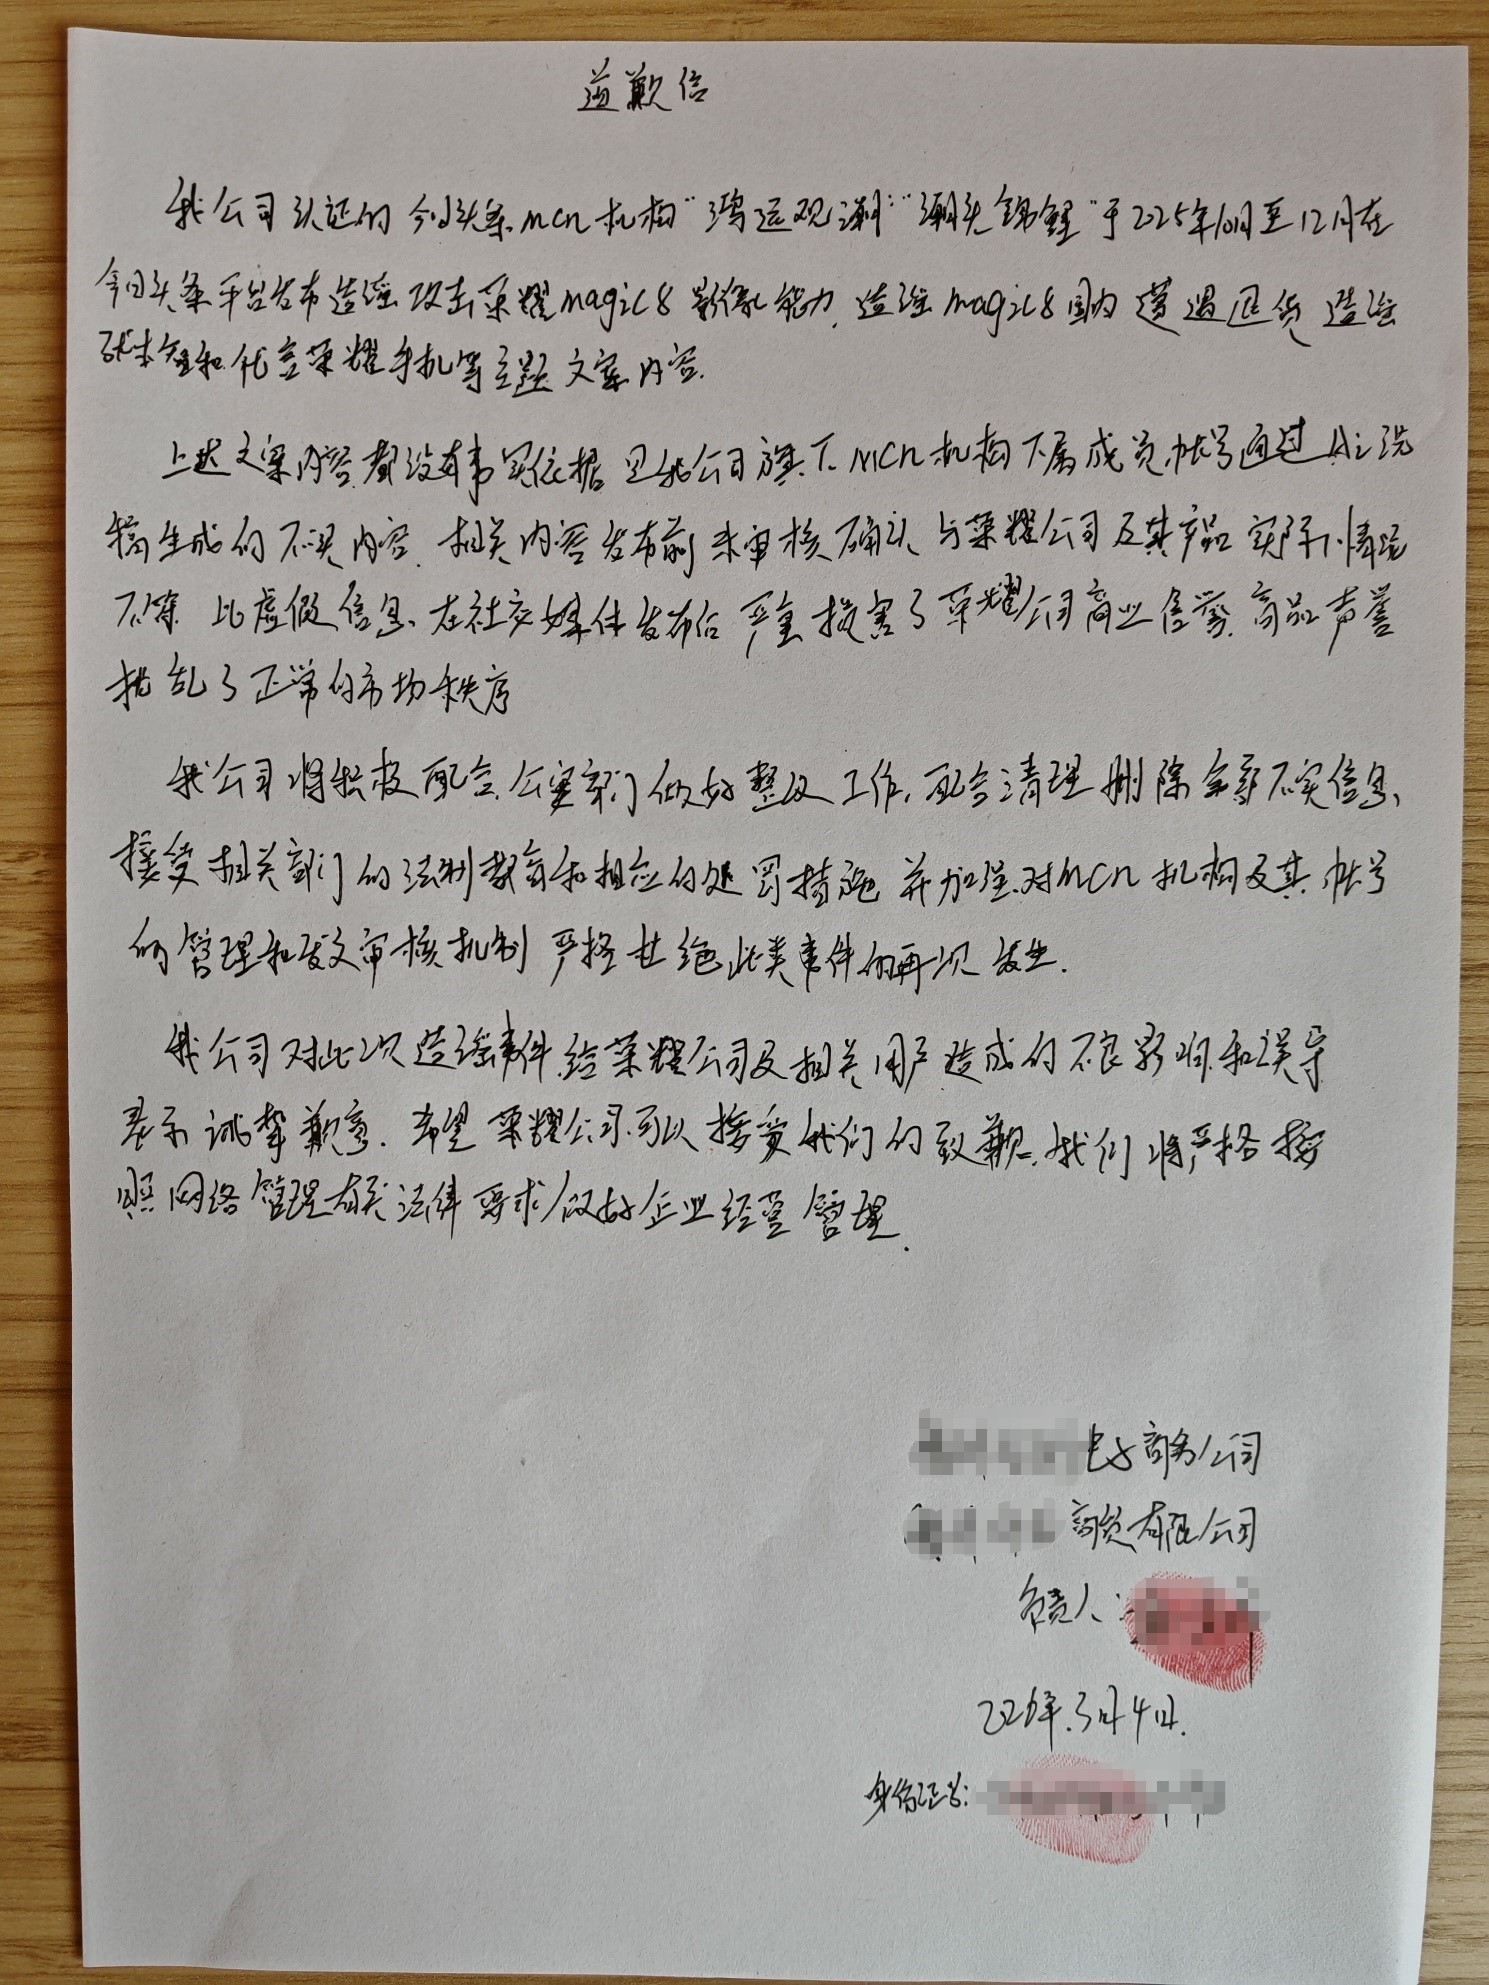 道歉信
我公司认证的今日头条mcn机构"鸿运观潮""潮头锦鲤"于2025年10月至12月在
今日头条平台发布造谣攻击荣耀magic8影像能力,造谣magic8国内遭遇退货 造谣
代言荣耀手机等主题文案内容.
上述文案内容都没有事实依据 是我公司旗下MCN机构下属成员帐号通过Ai洗
稿生成的不实内容.相关内容发布前未审核确认 与荣耀公司及其产品实际情况
不符 此虚假信息 在社交媒体发布后严重损害了荣耀公司商业信誉、商品声誉
扰乱了正常的市场秩序
我公司将积极配合公安部门做好整改工作,配合清理删除全部不实信息,
接受相关部门的法制教育和相应的处罚措施 并加强对MCN机构及其帐号
的管理和发文审核机制 严格杜绝此类事件的再次发生.
我公司对此次造谣事件给荣耀公司及相关用户造成的不良影响和误导
表示诚挚歉意.希望荣耀公司可以接受我们的致歉.我们将严格按
照网络管理有关法律要求做好企业经营管理.
电子商务公司
商贸有限公司
负责人:
2026年.3月4日.
身份证号: